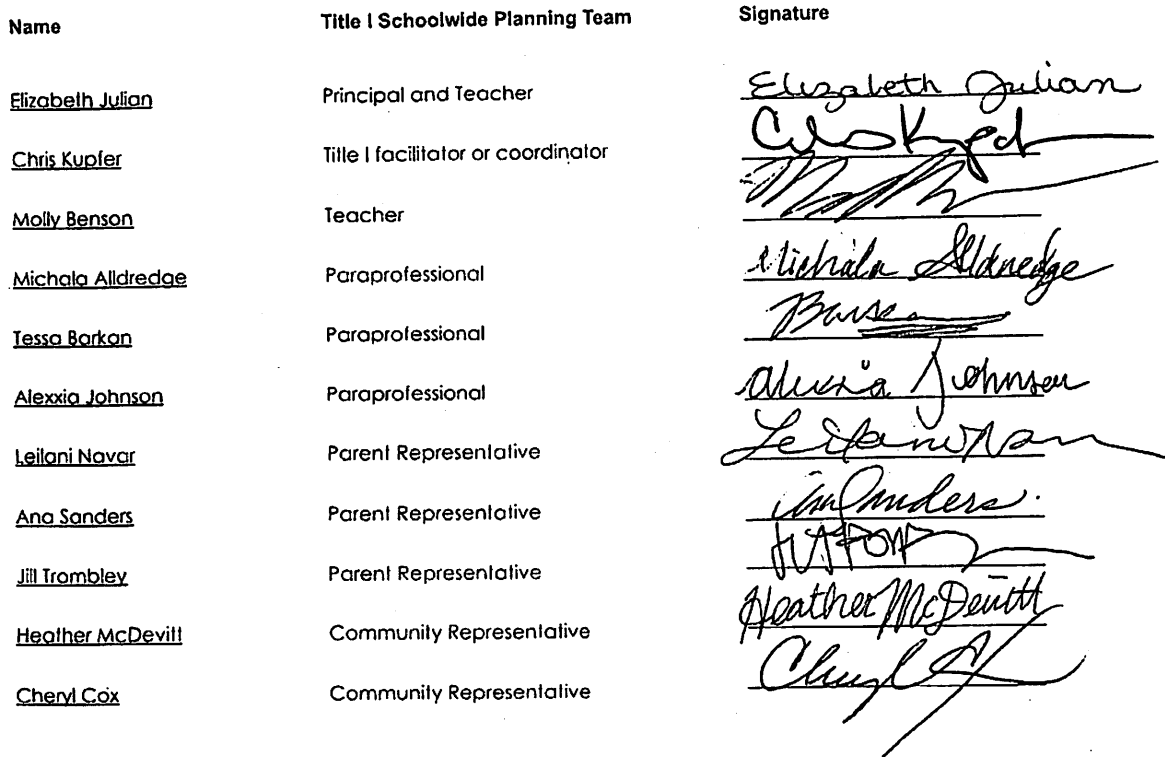 Name Title I Schoolwide Planning Team Signature
Elizabeth Julian Principal and Teacher Elizabeth Julian
Chris Kupfer Title I facilitator or coordinator
Molly Benson Teacher
Michala Alldredge Paraprofessional Michala Alldredge
Tessa Barkan Paraprofessional
Alexxia Johnson Paraprofessional Alexxia Johnson
Leilani Navar Parent Representative Leilani
Ana Sanders Parent Representative Ana Sanders
Jill Trombley Parent Representative
Heather McDevitt Community Representative Heather McDevitt
Cheryl Cox Community Representative Cheryl